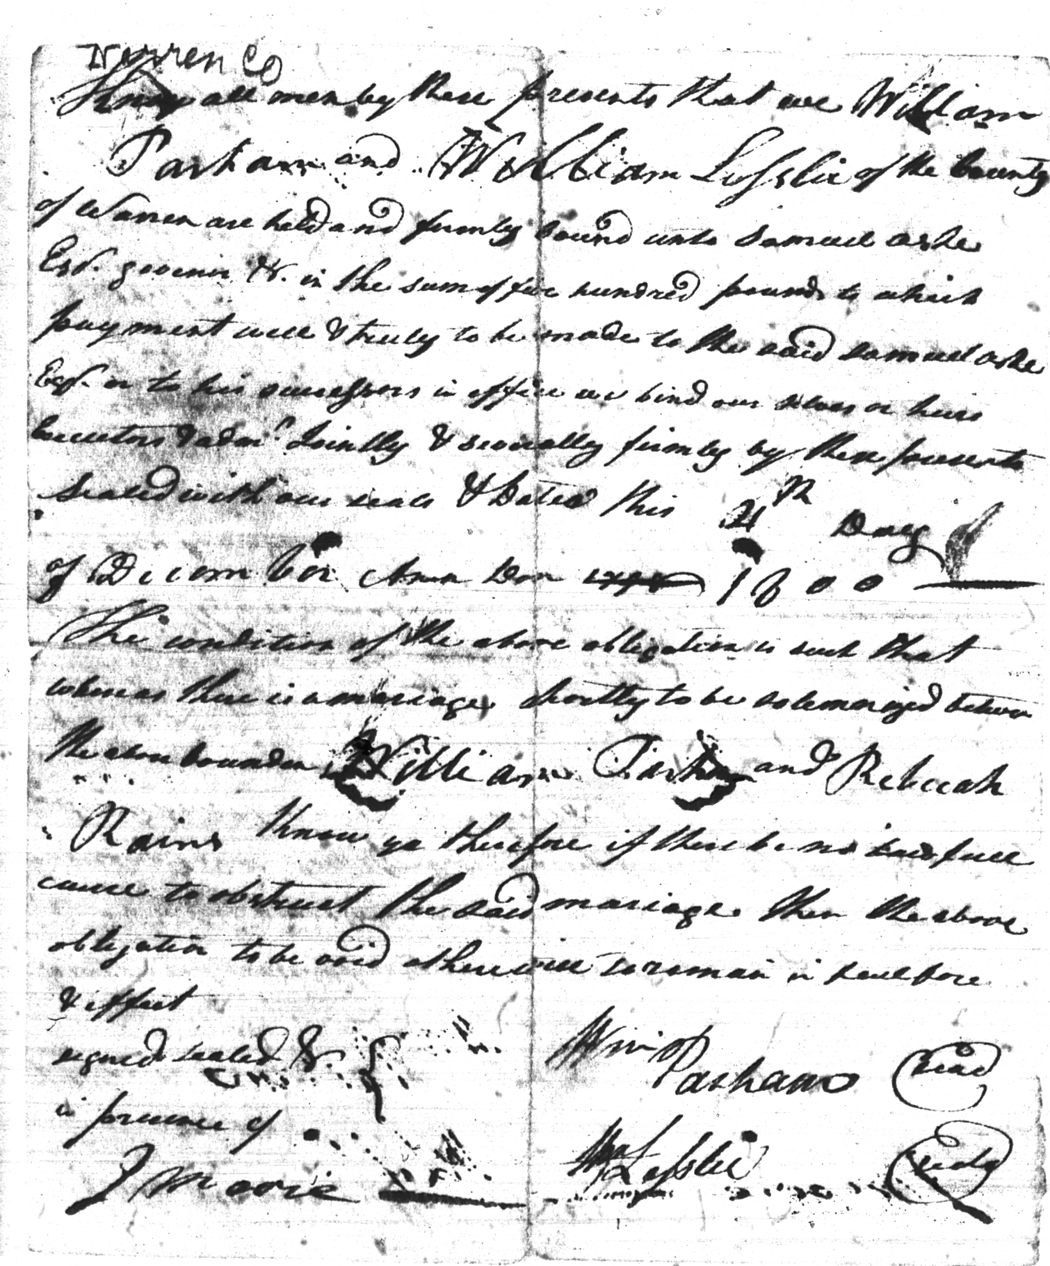 Warren Co
Know all men by these presents that we William
Parham and William Lesslie of the County
of Warren are held and firmly bound unto Samuel Ashe
Esqr. govenor &c. in the sum of five hundred pounds to which
payment well & truly to be made to the said Samuel Ashe
Esqr. or to his successors in office we bind our selves or heirs
Executors & admrs Jointly & severally firmly by these presents
Sealed with our seals & Dated this 4th Day
of December Anno Dom 1800
The condition of the above obligation is such that
whereas there is a mariage shortly to be solemnized between
the above bounden William Parham and Rebecah
Rains Know ye therefore if there be no lawfull
cause to obstruct the said mariage then the above
obligation to be void otherwise to remain in full force
& effect
signed sealed &c.
in presence of
Wm Parham Seal
Wm Lesslie Seal
J Moore